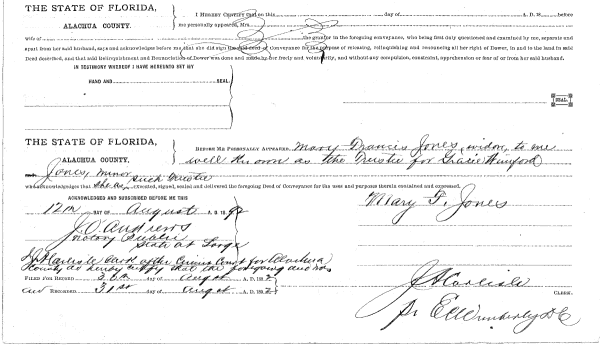 THE STATE OF FLORIDA,
ALACHUA COUNTY.
I HEREBY CERTIFY that on this day of A. D. 18 before
me personally appeared, Mrs.
wife of the grantor in the foregoing conveyance, who being first duly questioned and examined by me, separate and
apart from her said husband, says and acknowledges before me that she did sign the said deed of Conveyance for the purpose of releasing, relinquishing and renouncing all her right of Dower, in and to the land in said
Deed described, and that said Relinquishment and Renunciation of Dower was done and made by her freely and voluntarily, and without any compulsion, constraint, apprehension or fear of or from her said husband.
IN TESTIMONY WHEREOF I HAVE HEREUNTO SET MY
HAND AND SEAL.
SEAL
THE STATE OF FLORIDA,
ALACHUA COUNTY.
BEFORE ME PERSONALLY APPEARED, Mary Francis Jones, widow, to me
well known as the Trustie for Gracie
Jones, minor
such Trustie
who acknowledges that she as executed, signed, sealed and delivered the foregoing Deed of Conveyance for the uses and purposes therein contained and expressed.
ACKNOWLEDGED AND SUBSCRIBED BEFORE ME THIS
12th DAY OF August A. D. 189
Mary F. Jones
J. O. Andrews
Notary Public
State at Large
I, J. A. Carlisle Clerk of the Circuit Court for Alachua
County do hereby certify that the foregoing
FILED FOR RECORD 30th day of August A. D. 189
and RECORDED 31st day of August A. D. 189
J A Carlisle
CLERK.
pr E C Wimberly D C